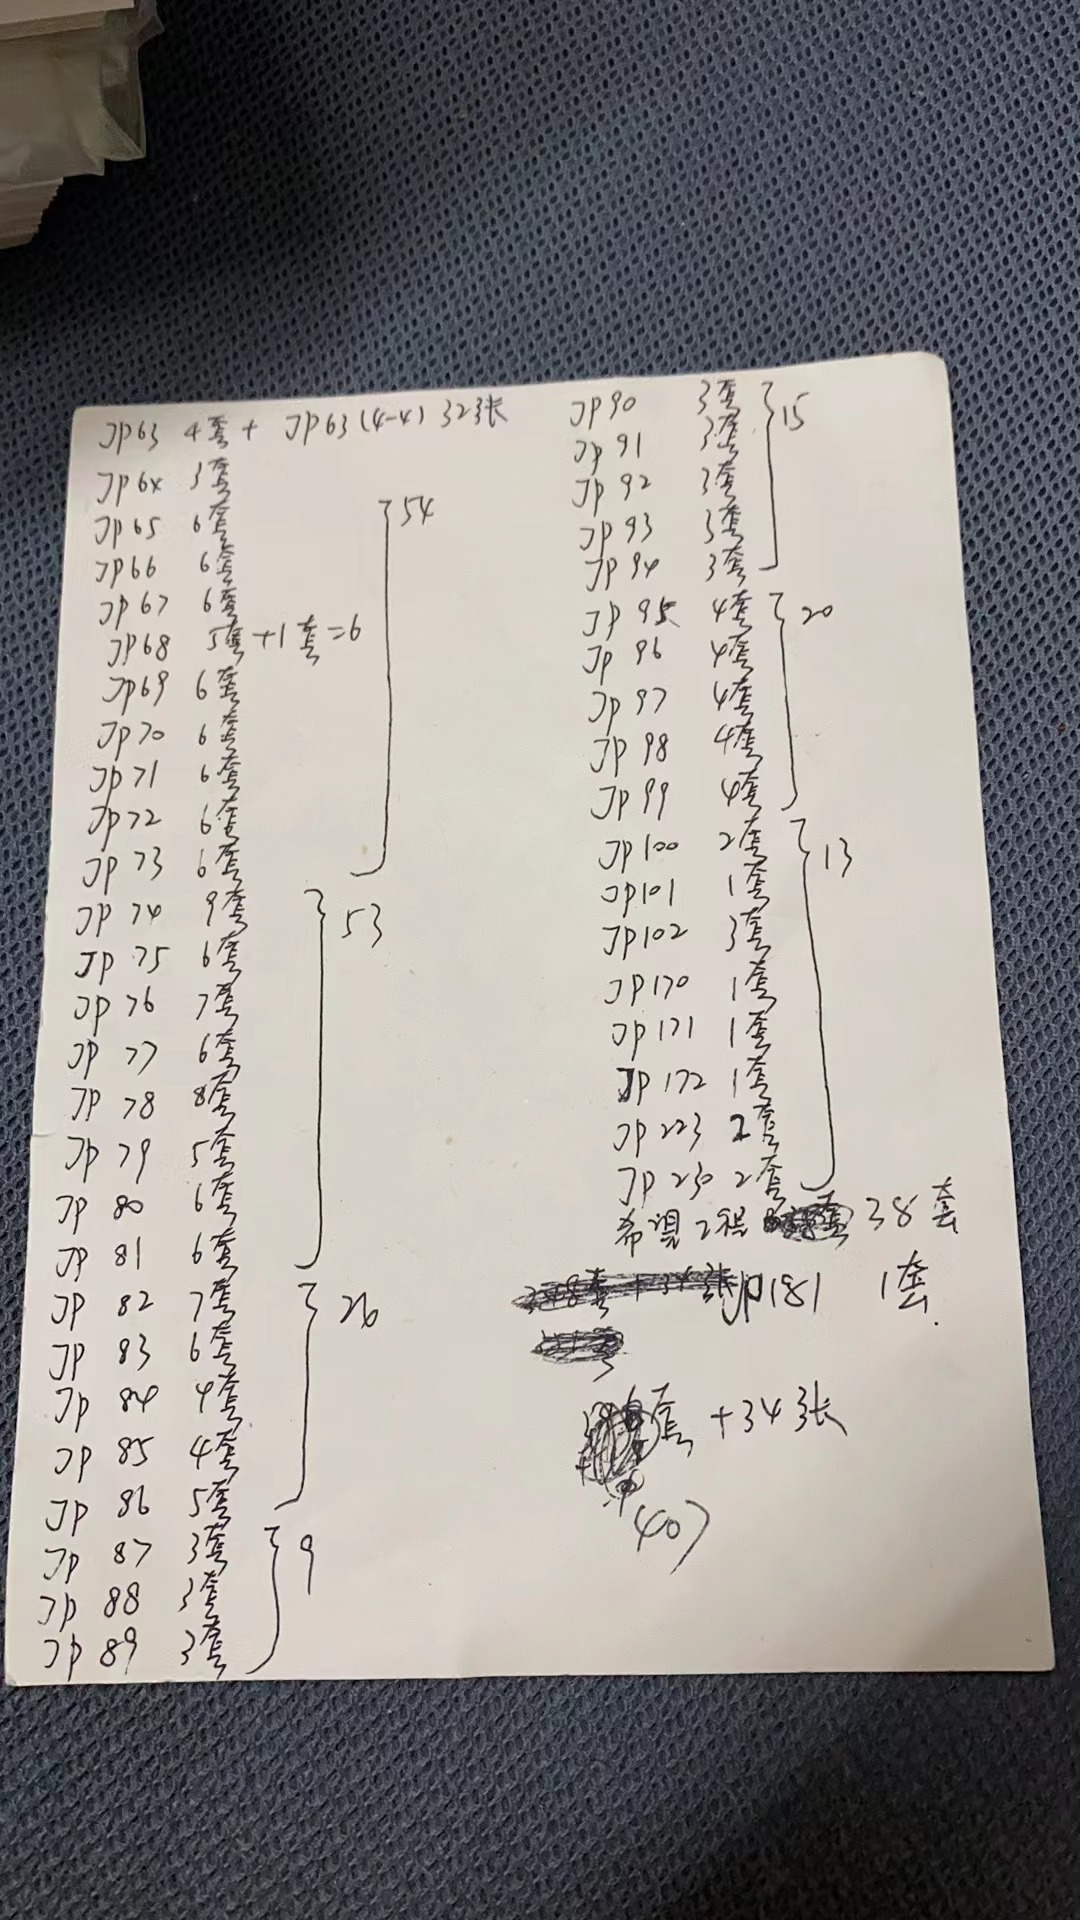 JP63 4套 + JP63(4-4) 32张
JP64 3套
JP65 6套
JP66 6套
JP67 6套
JP68 5套+1套=6
JP69 6套
JP70 6套
JP71 6套
JP72 6套
JP73 6套
54
JP74 9套
JP75 6套
JP76 7套
JP77 6套
JP78 8套
JP79 5套
JP80 6套
JP81 6套
53
JP82 7套
JP83 6套
JP84 4套
JP85 4套
JP86 5套
26
JP87 3套
JP88 3套
JP89 3套
9
JP90 3套
JP91 3套
JP92 3套
JP93 3套
JP94 3套
15
JP95 4套
JP96 4套
JP97 4套
JP98 4套
JP99 4套
20
JP100 2套
JP101 1套
JP102 3套
JP170 1套
JP171 1套
JP172 1套
JP223 2套
JP230 2套
13
希望工程 38套
348套+34张 JP181 1套
套+34张
407